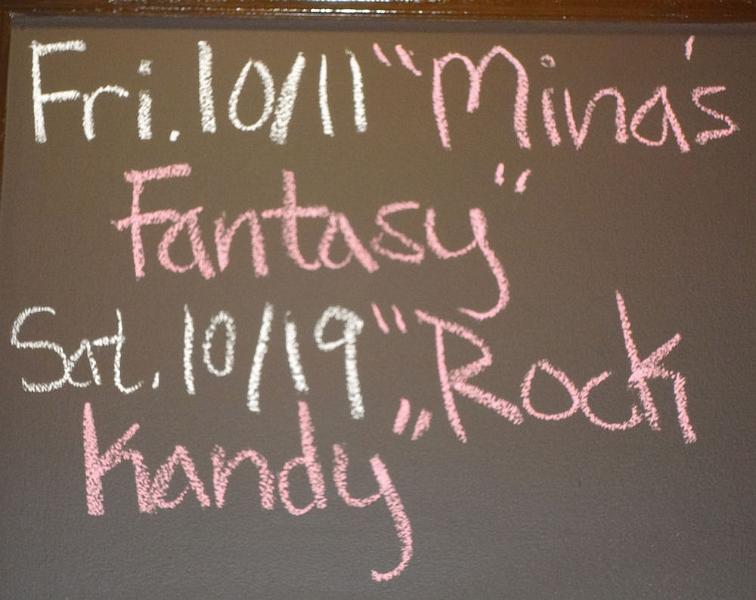 Fri. 10/11 "Mina's
Fantasy"
Sat. 10/19 "Rock
Kandy"